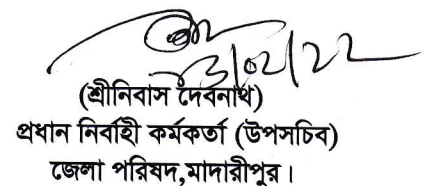 ৩/০২/২২
(শ্রীনিবাস দেবনাথ)
প্রধান নির্বাহী কর্মকর্তা (উপসচিব)
জেলা পরিষদ,মাদারীপুর।